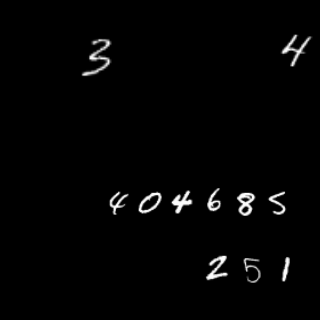 3 4
404685
251